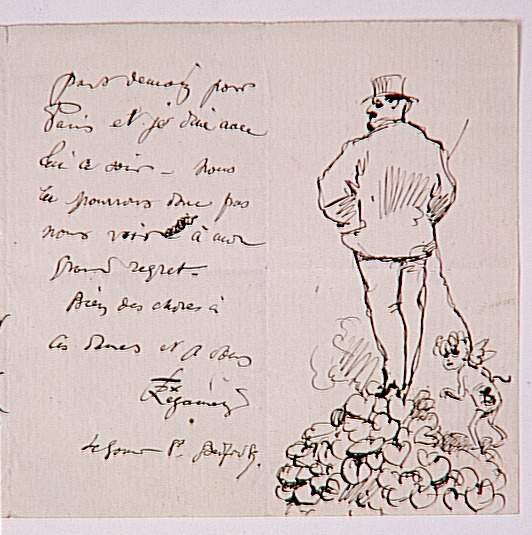 pars demain pour
Paris et je dine avec
lui ce soir – nous
ne pourrons donc pas
nous voir à mon
grand regret.
Bien des choses à
ces dames et à vous
Fx Régamey